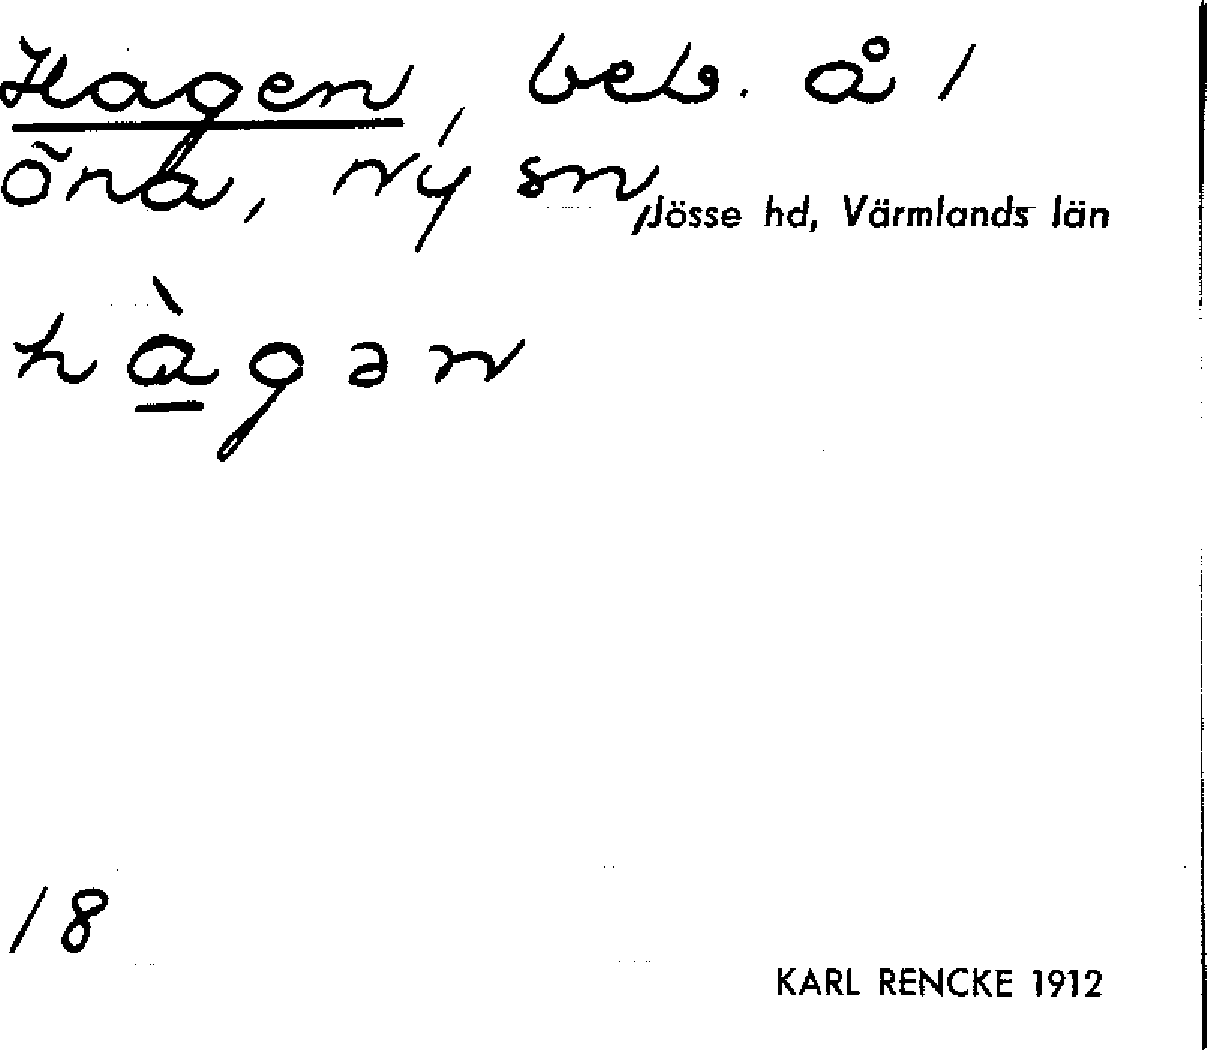 Hagen, beb. å 1
Öna, Ny sn, Jösse hd, Värmlands län
hàgən
18
KARL RENCKE 1912